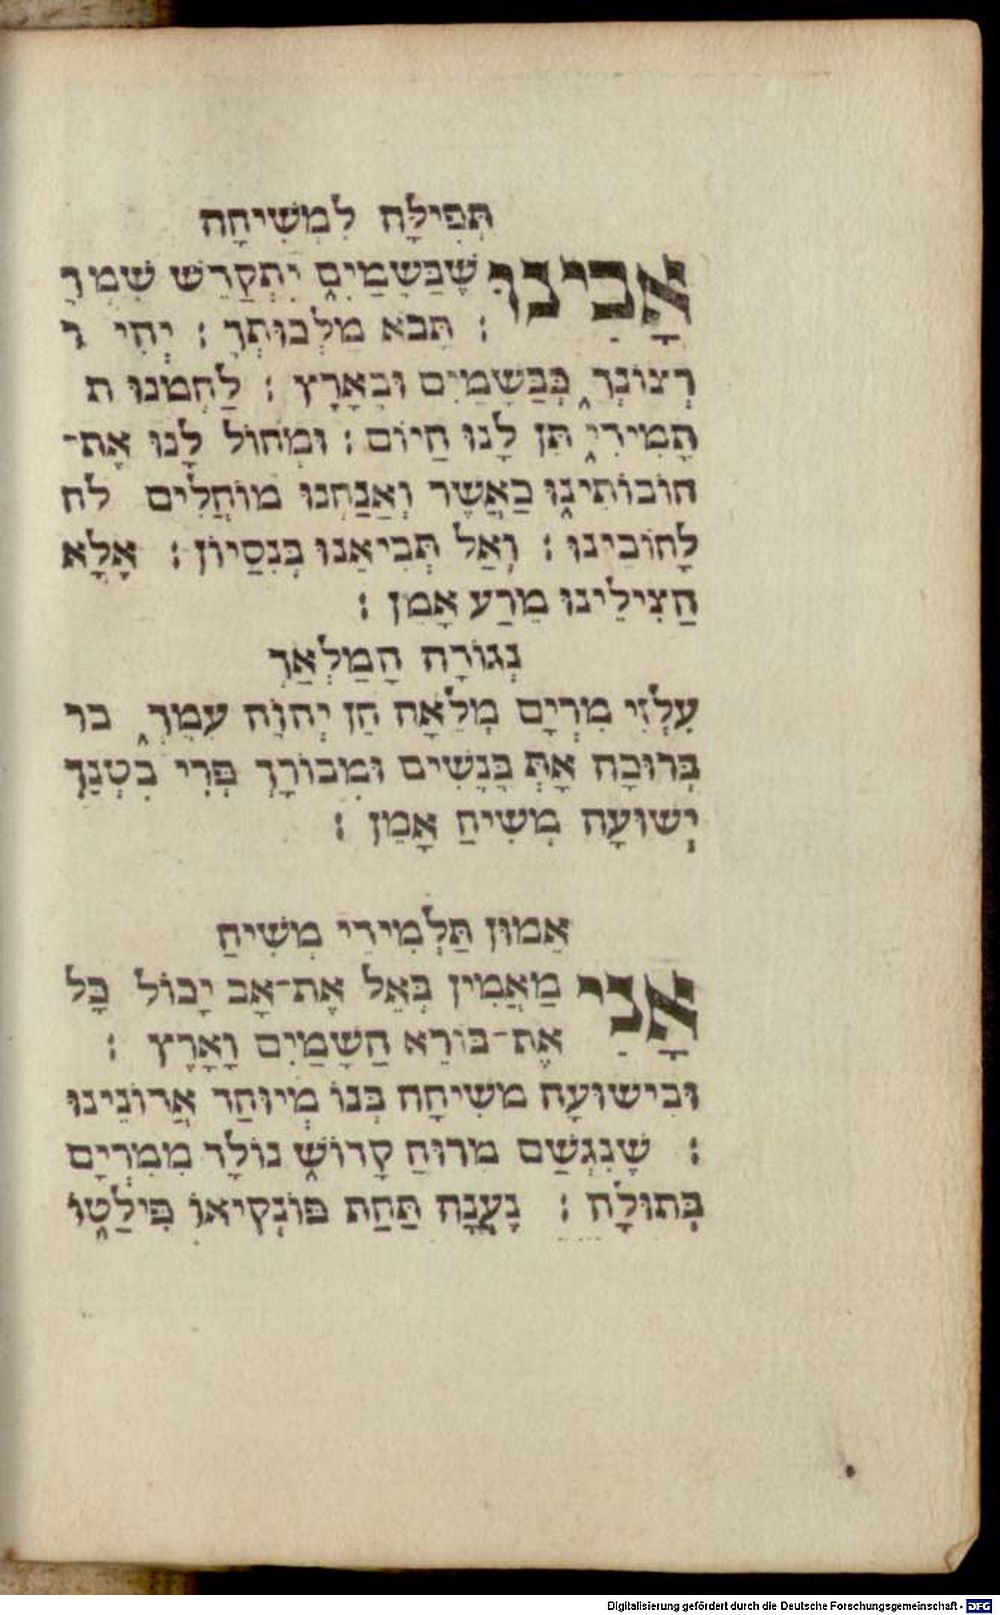 תְּפִילָּה לִמְשִׁיחָה
אָבִינוּ שֶׁבַּשָּׁמַיִם יִתְקַדֵּשׁ שִׁמְךָ
: תָּבֹא מַלְכוּתְךָ : יְהִי ר
רְצוֹנְךָ כְּבַשָּׁמַיִם וּבָאָרֶץ : לַחְמֵנוּ ת
תָּמִידִי תֵּן לָנוּ הַיּוֹם : וּמְחוֹל לָנוּ אֶת־
חוֹבוֹתִינוּ כַאֲשֶׁר וְאַנַחְנוּ מוֹחֲלִים לח
לָחוֹבֵינוּ : וְאַל תְּבִיאֵנוּ בְּנִסַיוֹן : אֶלָּא
הַצִילֵינוּ מֵרַע אָמֵן :
נְגוּרָה הַמַלְאַךְ
עִלְזִי מִרְיָם מְלֵאָה חֵן יְהֹוָה עִמֵּךְ בר
בְּרוּכָה אָתְּ בַּנָשִׁים וּמְבוֹרָךְ פְּרִי בִטְנֵךְ
יְשׁוּעָה מָשִׁיחַ אָמֵן :
אֵמוּן תַּלְמִידֵי מָשִׁיחַ
אֲנִי מַאֲמִין בְּאֵל אֶת־אָב יָכוֹל כָּל
אֶת־בּוֹרֵא הַשָּׁמַיִם וָאָרֶץ :
וּבִישׁוּעָה מְשִׁיחָה בְּנוֹ מְיוּחַד אֲדוֹנֵינוּ
: שֶׁנִגְשַׁם מרוּחַ קָדוֹשׁ נוֹלָד מִמִרְיָם
בְּתוּלָה : נַעֲנָה תַּחַת פּוֹנְקִיאוֹ פִּילַטוֹ
Digitalisierung gefördert durch die Deutsche Forschungsgemeinschaft - DFG